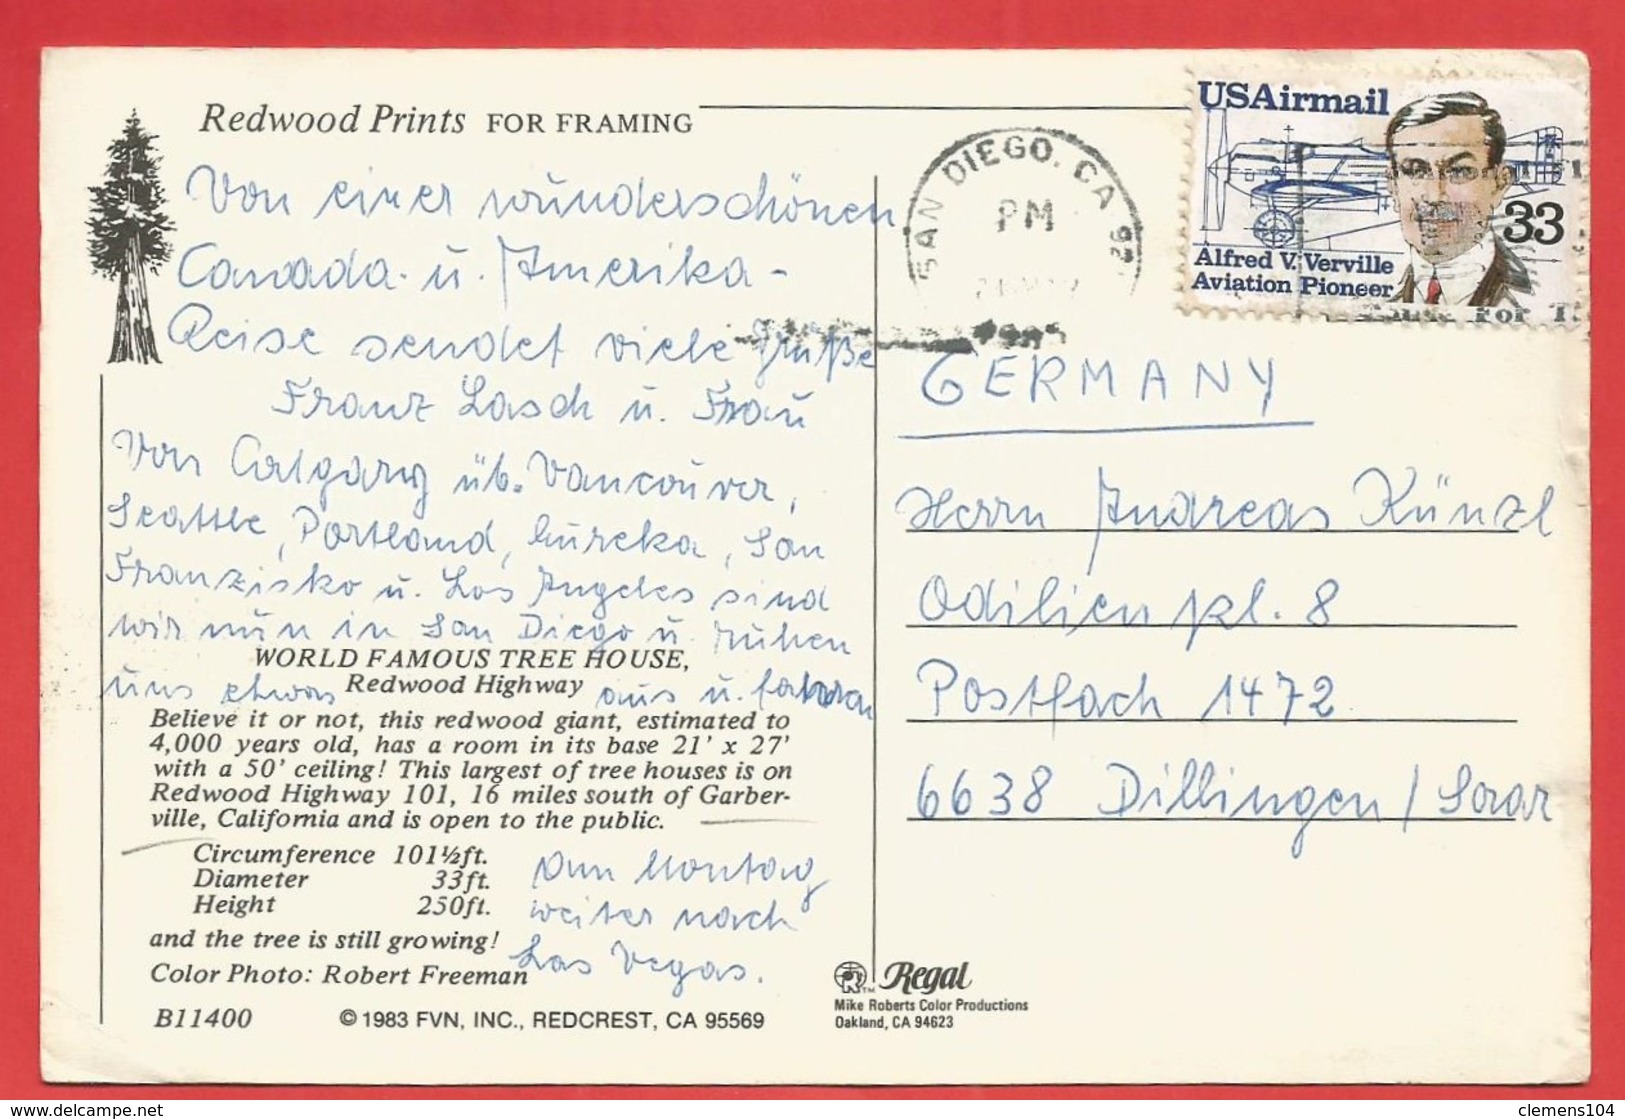 Redwood Prints FOR FRAMING
Von einer wunderschönen
Canada- u. Amerika-
Reise sendet viele Grüße
Franz Lasch u. Frau
Von Calgary üb. Vancouver,
Seattle, Portland, Eureka, San
Franzisko u. Los Angeles sind
wir nun in San Diego u. ruhen
uns etwas aus u. fahren
WORLD FAMOUS TREE HOUSE,
Redwood Highway
Believe it or not, this redwood giant, estimated to
4,000 years old, has a room in its base 21' x 27'
with a 50' ceiling! This largest of tree houses is on
Redwood Highway 101, 16 miles south of Garber-
ville, California and is open to the public.
Circumference 101½ft.
Diameter 33ft.
Height 250ft.
and the tree is still growing!
Color Photo: Robert Freeman
am Montag
weiter nach
Las Vegas.
B11400 © 1983 FVN, INC., REDCREST, CA 95569
Regal
Mike Roberts Color Productions
Oakland, CA 94623
SAN DIEGO, CA
PM
USAirmail
33
Alfred V. Verville
Aviation Pioneer
GERMANY
Herrn Andreas Künzl
Odilienpl. 8
Postfach 1472
6638 Dillingen / Saar
clemens104